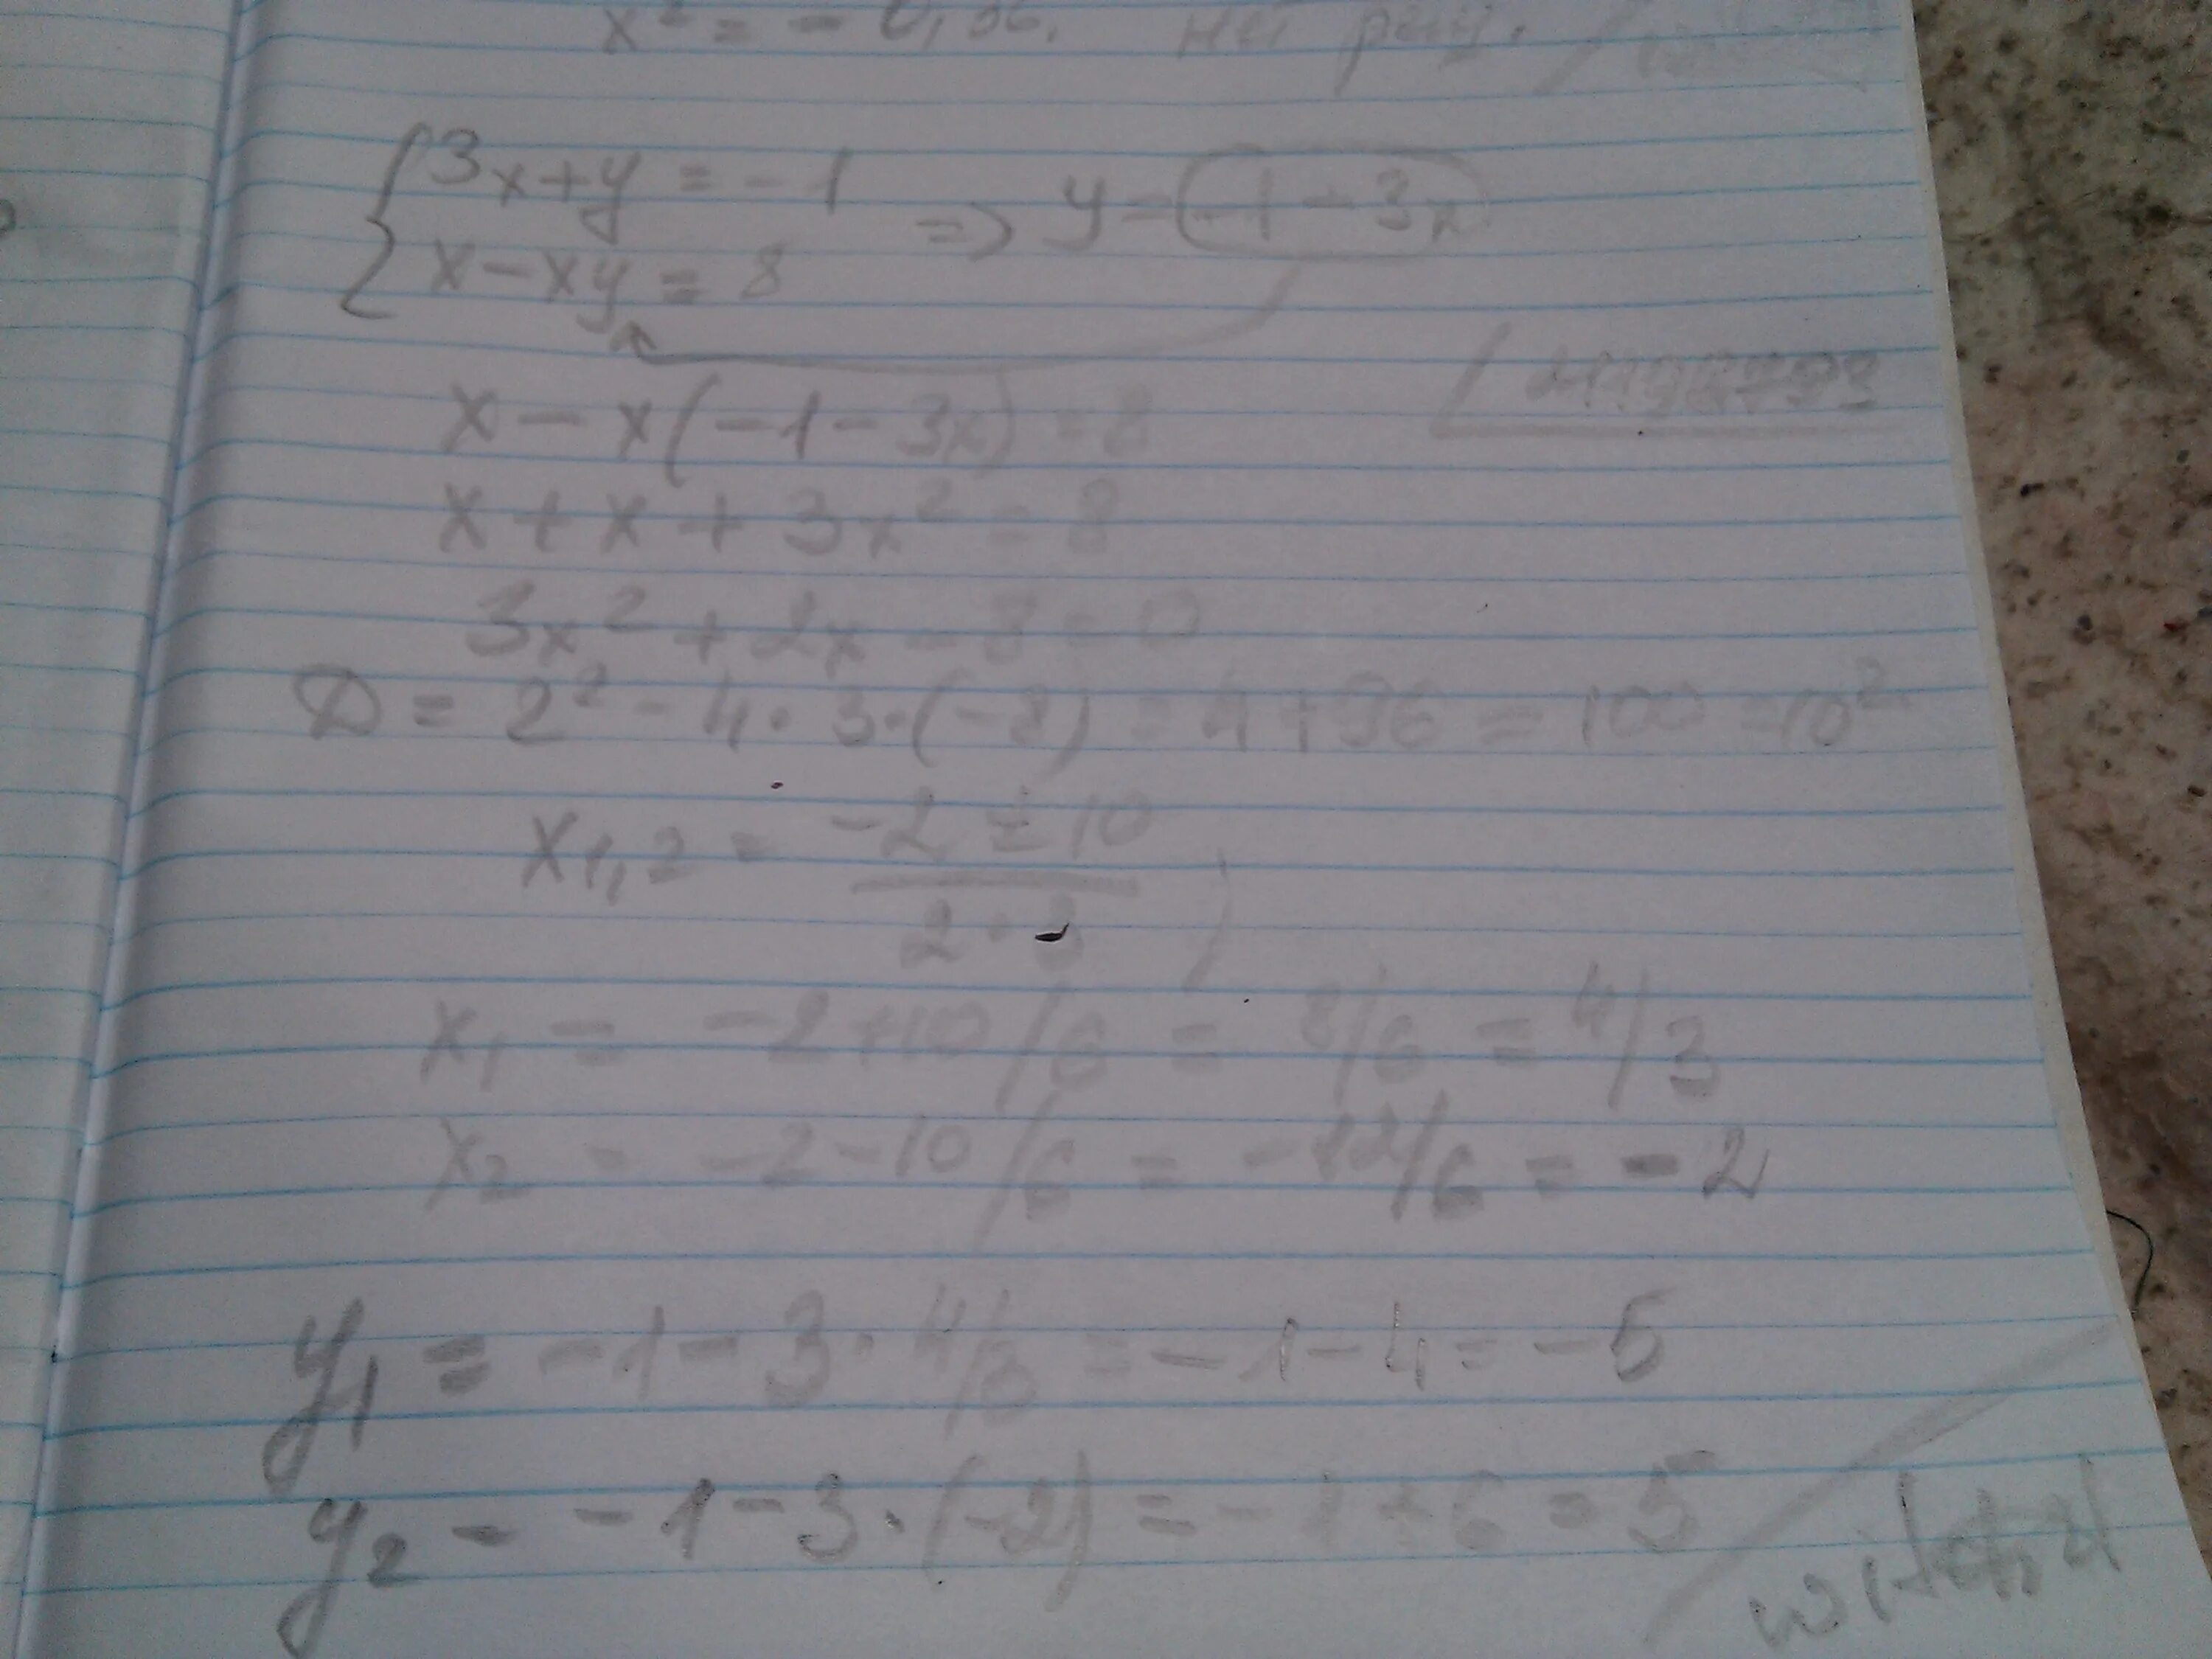 x² = - 0,
3x+y = -1
x-xy = 8
=> y = -1-3x
x - x(-1-3x) = 8
x + x + 3x² = 8
3x² + 2x - 8 = 0
D = 2² - 4·3·(-8) = 4+96 = 100 = 10²
x1,2 = -2±10
2·3
x1 = -2+10/6 = 8/6 = 4/3
x2 = -2-10/6 = -12/6 = -2
y1 = -1-3·4/3 = -1-4 = -5
y2 - -1-3·(-2) = -1+6 = 5